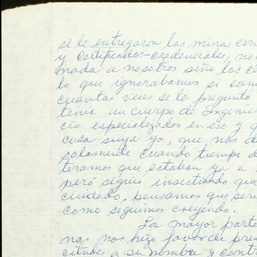 se le entregaron las minas con
y certificados-credenciales, no
nada a nosotros seño los c
lo que ignorabamos si com
cuantas veces se le pregunto
tenia un cuerpo de Ingenie
cia especializados en eso y q
cosa suya yo, que nos d
solamente cuando tiempo d
teramos que estaban ya a
peró seguia insistiendo que
cuidado, pensamos que seri
como seguimos creyendo.
La mayor parte
nas nos hizo favor de pres
citudes a su nombre y contr